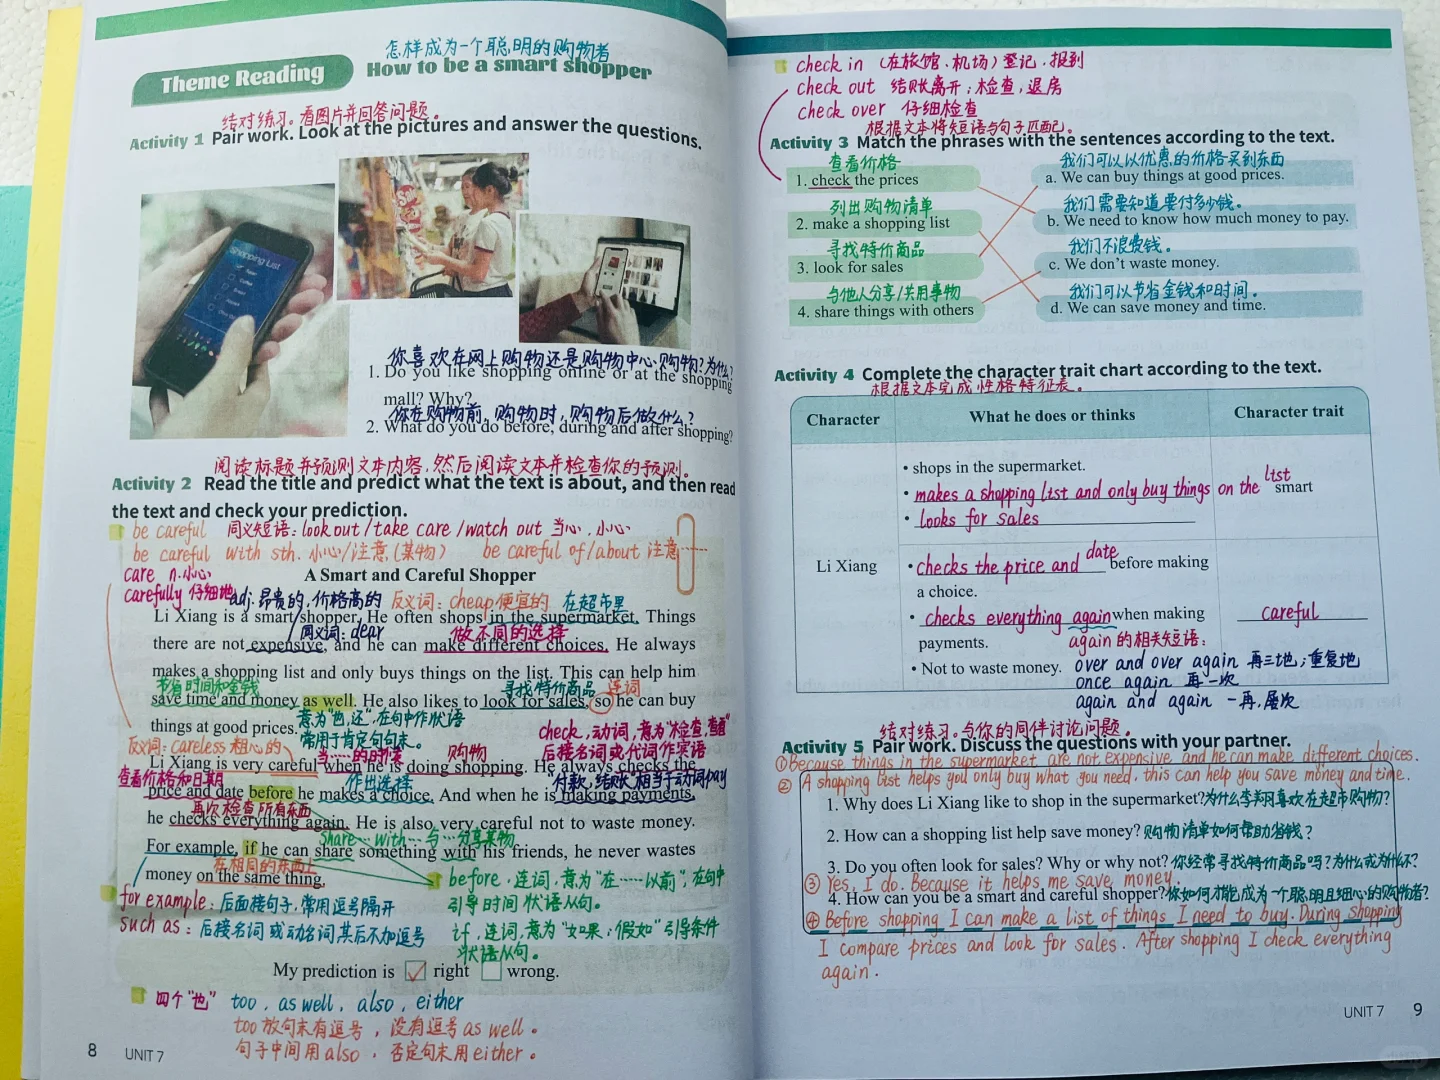 怎样成为一个聪明的购物者
Theme Reading How to be a smart shopper
结对练习。看图片并回答问题。
Activity 1 Pair work. Look at the pictures and answer the questions.
Shopping List
你喜欢在网上购物还是购物中心购物?为什么?
1. Do you like shopping online or at the shopping
mall? Why?
你在购物前,购物时,购物后做什么?
2. What do you do before, during and after shopping?
阅读标题并预测文本内容,然后阅读文本并检查你的预测。
Activity 2 Read the title and predict what the text is about, and then read
the text and check your prediction.
be careful 同义短语: look out/take care/watch out 当心,小心
be careful with sth. 小心/注意(某物) be careful of/about 注意……
care n.小心
A Smart and Careful Shopper
carefully 仔细地
adj.昂贵的,价格高的 反义词: cheap便宜的 在超市里
Li Xiang is a smart shopper. He often shops in the supermarket. Things
同义词: dear 做不同的选择
there are not expensive, and he can make different choices. He always
makes a shopping list and only buys things on the list. This can help him
节省时间和金钱 寻找特价商品 连词
save time and money as well. He also likes to look for sales, so he can buy
things at good prices. 意为"也,还",在句中作状语
常用于肯定句句末。
check,动词,意为"检查,查看"
后接名词或代词作宾语
反义词: careless 粗心的 当……的时候 购物
Li Xiang is very careful when he is doing shopping. He always checks the
查看价格和日期 作出选择 付款,结账,相当于动词pay
price and date before he makes a choice. And when he is making payments,
再次检查所有东西
he checks everything again. He is also very careful not to waste money.
share…with…与…分享某物
For example, if he can share something with his friends, he never wastes
在相同的东西上
money on the same thing.
before,连词,意为"在……以前",在句中
引导时间状语从句。
for example: 后面接句子,常用逗号隔开
such as: 后接名词或动名词其后不加逗号
if,连词,意为"如果;假如"引导条件
状语从句。
My prediction is right wrong.
四个"也" too, as well, also, either
too 放句末有逗号,没有逗号as well。
句子中间用also,否定句末用either。
8 UNIT 7
check in (在旅馆、机场)登记,报到
check out 结账离开;检查,退房
check over 仔细检查
根据文本将短语与句子匹配。
Activity 3 Match the phrases with the sentences according to the text.
查看价格
1. check the prices
列出购物清单
2. make a shopping list
寻找特价商品
3. look for sales
与他人分享/共用事物
4. share things with others
我们可以以优惠的价格买到东西
a. We can buy things at good prices.
我们需要知道要付多少钱。
b. We need to know how much money to pay.
我们不浪费钱。
c. We don't waste money.
我们可以节省金钱和时间。
d. We can save money and time.
Activity 4 Complete the character trait chart according to the text.
根据文本完成性格特征表。
Character What he does or thinks Character trait
Li Xiang
• shops in the supermarket.
• makes a shopping list and only buy things on the list
smart
• looks for sales
• checks the price and date before making
a choice.
• checks everything again when making
payments.
careful
again的相关短语:
• Not to waste money.
over and over again 再三地;重复地
once again 再一次
again and again 一再,屡次
结对练习。与你的同伴讨论问题。
Activity 5 Pair work. Discuss the questions with your partner.
①Because things in the supermarket are not expensive and he can make different choices.
② A shopping list helps you only buy what you need, this can help you save money and time.
1. Why does Li Xiang like to shop in the supermarket?为什么李翔喜欢在超市购物?
2. How can a shopping list help save money?购物清单如何帮助省钱?
3. Do you often look for sales? Why or why not?你经常寻找特价商品吗?为什么或为什么不?
③ Yes, I do. Because it helps me save money.
4. How can you be a smart and careful shopper?你如何才能成为一个聪明且细心的购物者?
④ Before shopping I can make a list of things I need to buy. During shopping
I compare prices and look for sales. After shopping I check everything
again.
UNIT 7 9